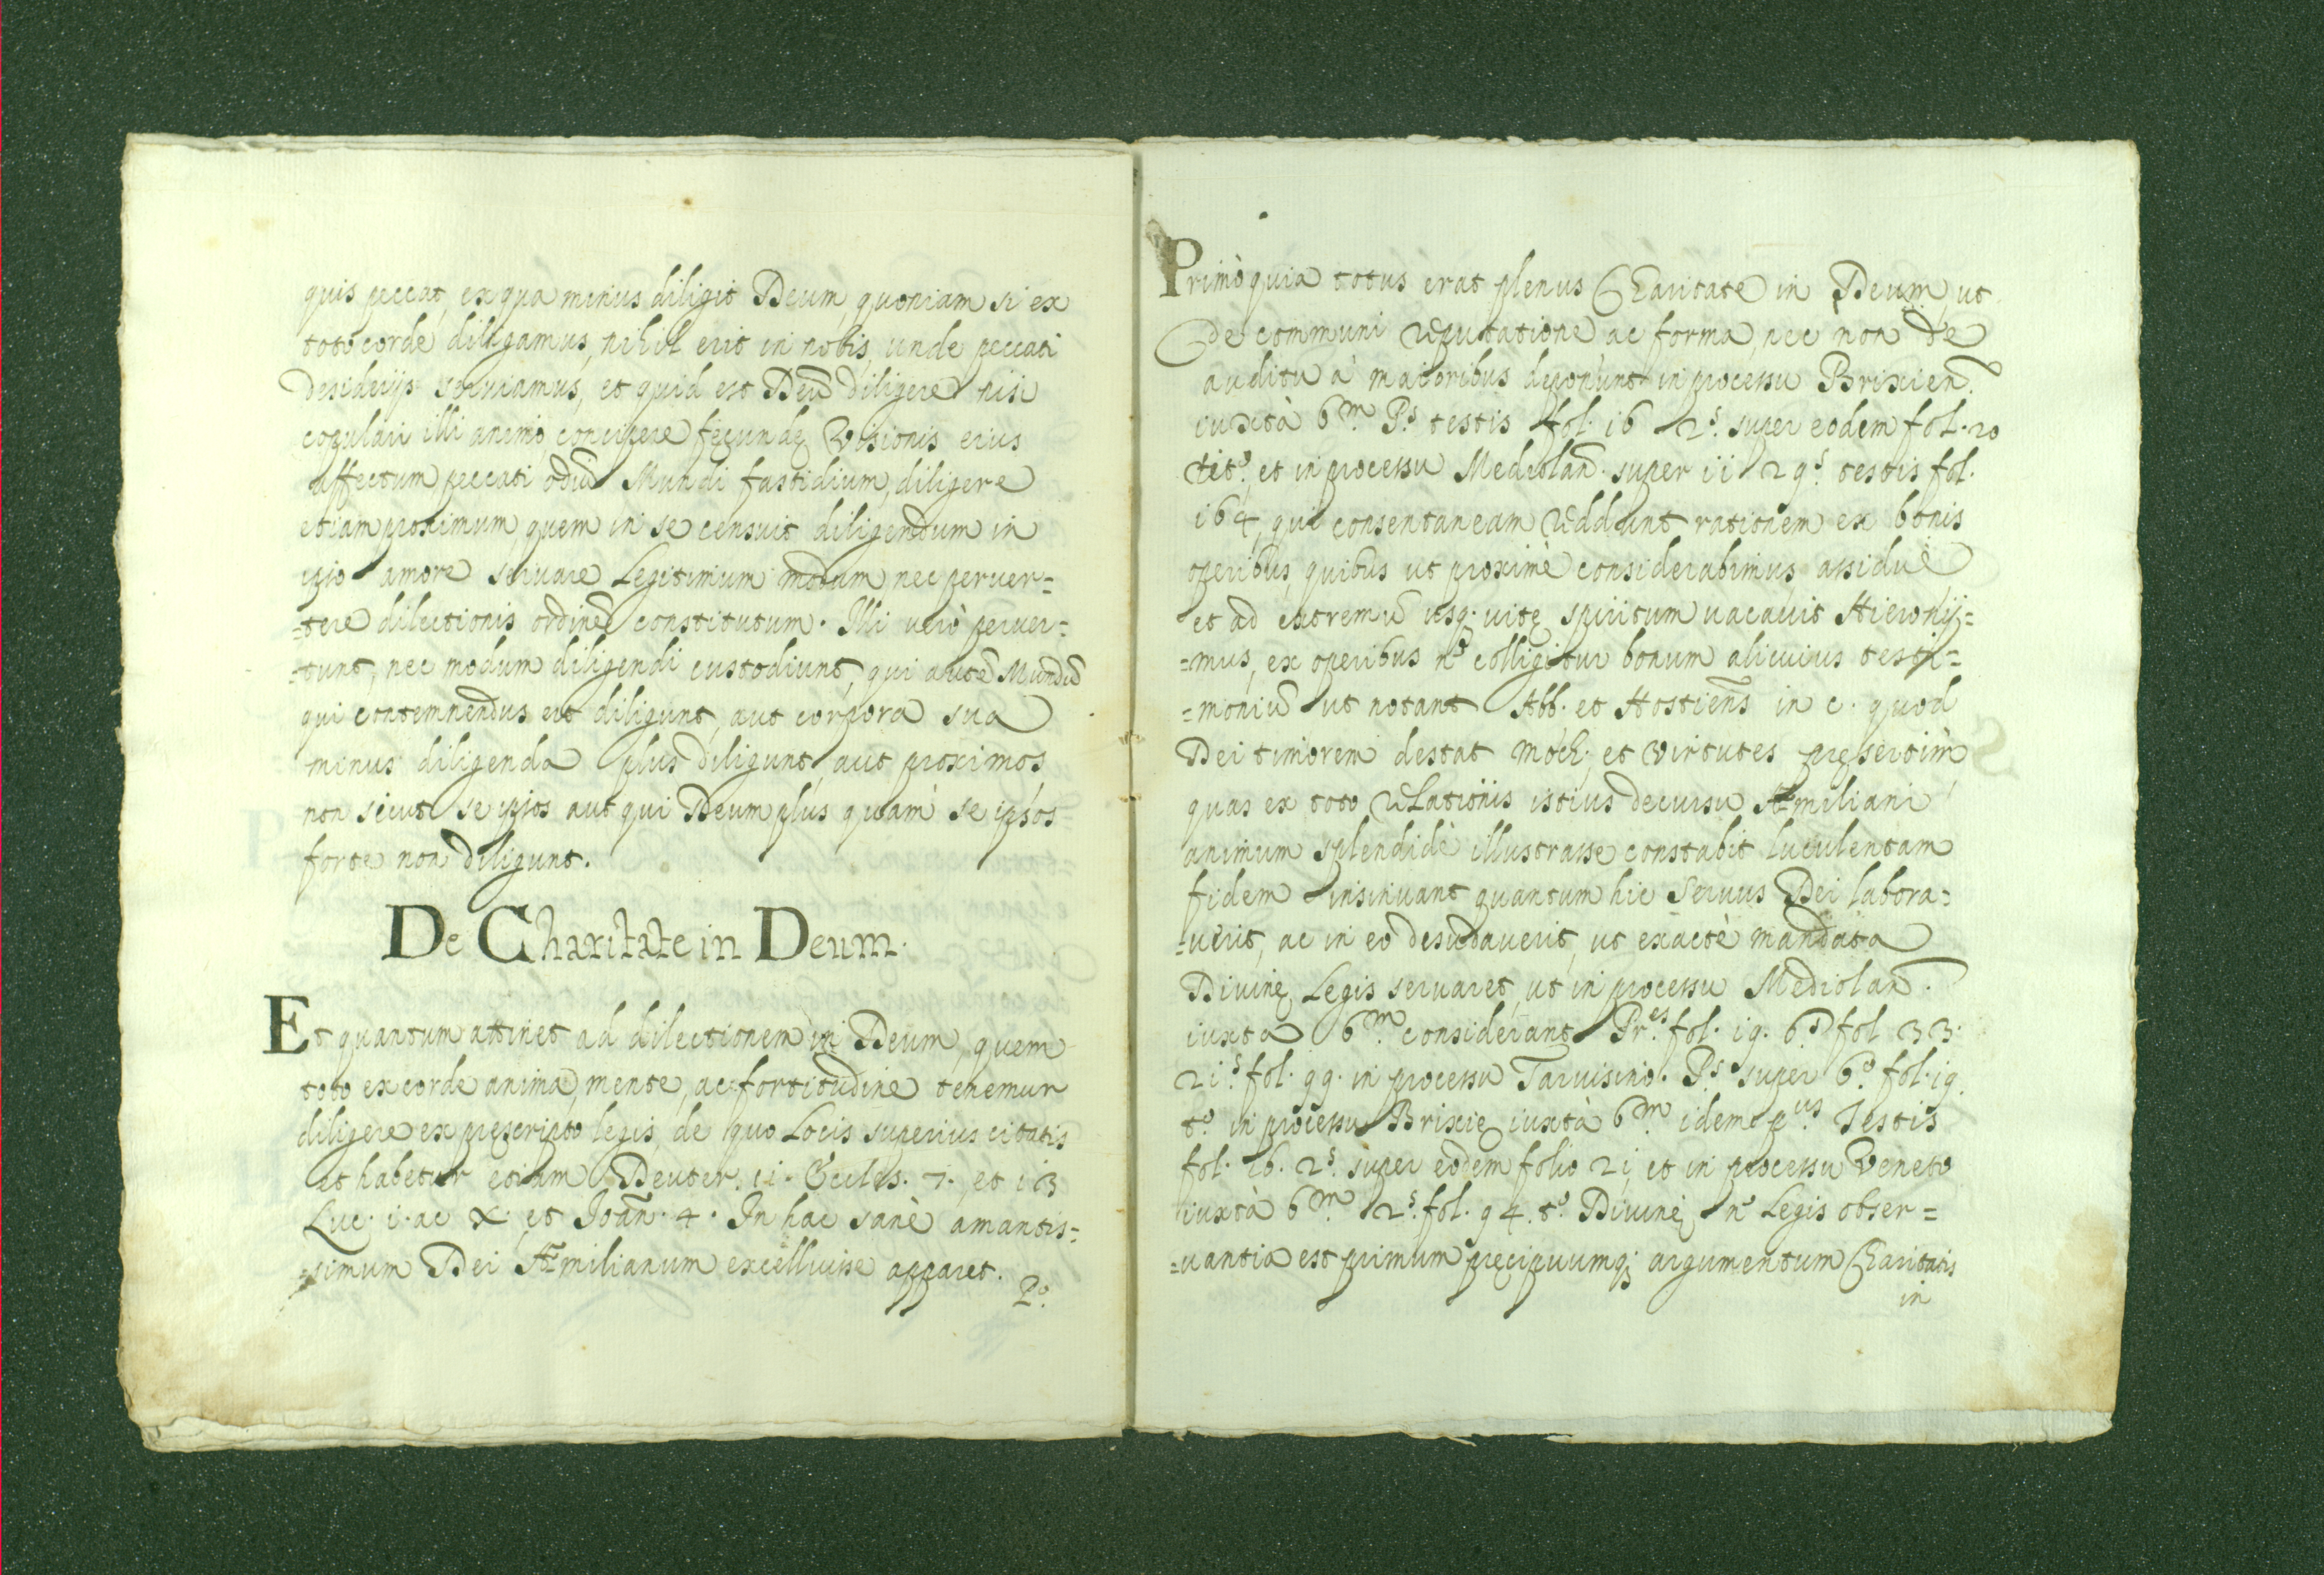 quis peccat, ex qua minus diligit Deum, quoniam si ex
toto corde diligamus, nihil erit in nobis, unde peccati
desiderijs seruiamus, et quid est Deũ diligere nisi
copulari illi animo, concipere fecundę Visionis eius
affectum peccati odiũ Mundi fastidium, diligere
etiam proximum, quem in se censuit diligendum in
ipso amore seruare Legitimum modum nec peruer=
=tere dilectionis ordinẽ constitutum. Illi verò peruer=
=tunt, nec modum diligendi custodiunt, qui autẽ Mundũ
qui contemnendus est diligunt, aut corpora sua
minus diligenda plus diligunt, aut proximos
non sicut se ipsos aut qui Deum plus quam se ipsos
forte non diligunt.
De Charitate in Deum.
Et quantum attinet ad dilectionem in Deum, quem
toto ex corde anima, mente, ac fortitudine tenemur
diligere ex pręscripto legis, de quo Locis superius citatis
et habetur etiam Deuter. ii. Eccles. 7., et i3
Luc. i. ac X. et Joañ. 4. In hac sanè amantis=
=simum Dei Æmilianum excelluisse apparet.
Pº.
Primò quia totus erat plenus Charitate in Deum, ut
de communi reputatione ac forma, nec non de
auditu à maioribus deponunt in processu Brixien.
iuxtà 6.m P.s testis fol. i6 2.s super eodem fol. 20
tit.º, et in processu Mediolañ. super ii 29.s testis fol.
i64, qui consentaneam reddunt rationem ex bonis
operibus, quibus ut proximè considerabimus, assiduè
et ad extremũ usq. vitę spiritum vacauit Hieronÿ=
=mus, ex operibus n.º colligitur bonum alicuius testi=
=moniũ ut notant Abb. et Hostieñs in c. quod
Dei timorem destat moch; et virtutes pręsertim
quas ex toto relationis istius decursu Æmiliani
animum splendidè illustrasse constabit luculentam
fidem insinuant quantum hic seruus Dei labora=
=uerit, ac in eo desudauerit, ut exactè mandata
Diuinę Legis seruaret, ut in processu Mediolañ.
iuxta 6.m considerant Pr.es fol. i9. 6.s fol 33.
2i.s fol. 99. in processu Taruisino. P.s super 6.º fol. i9.
t.º in processu Brixię iuxtà 6.m idem p.us Testis
fol. i6. 2.s super eodem folio 2i, et in processu Veneto
iuxtà 6.m 2.s fol. 94. t.º Diuinę n.º Legis obser=
=uantia est primum pręcipuumq; argumentum Charitatis
in